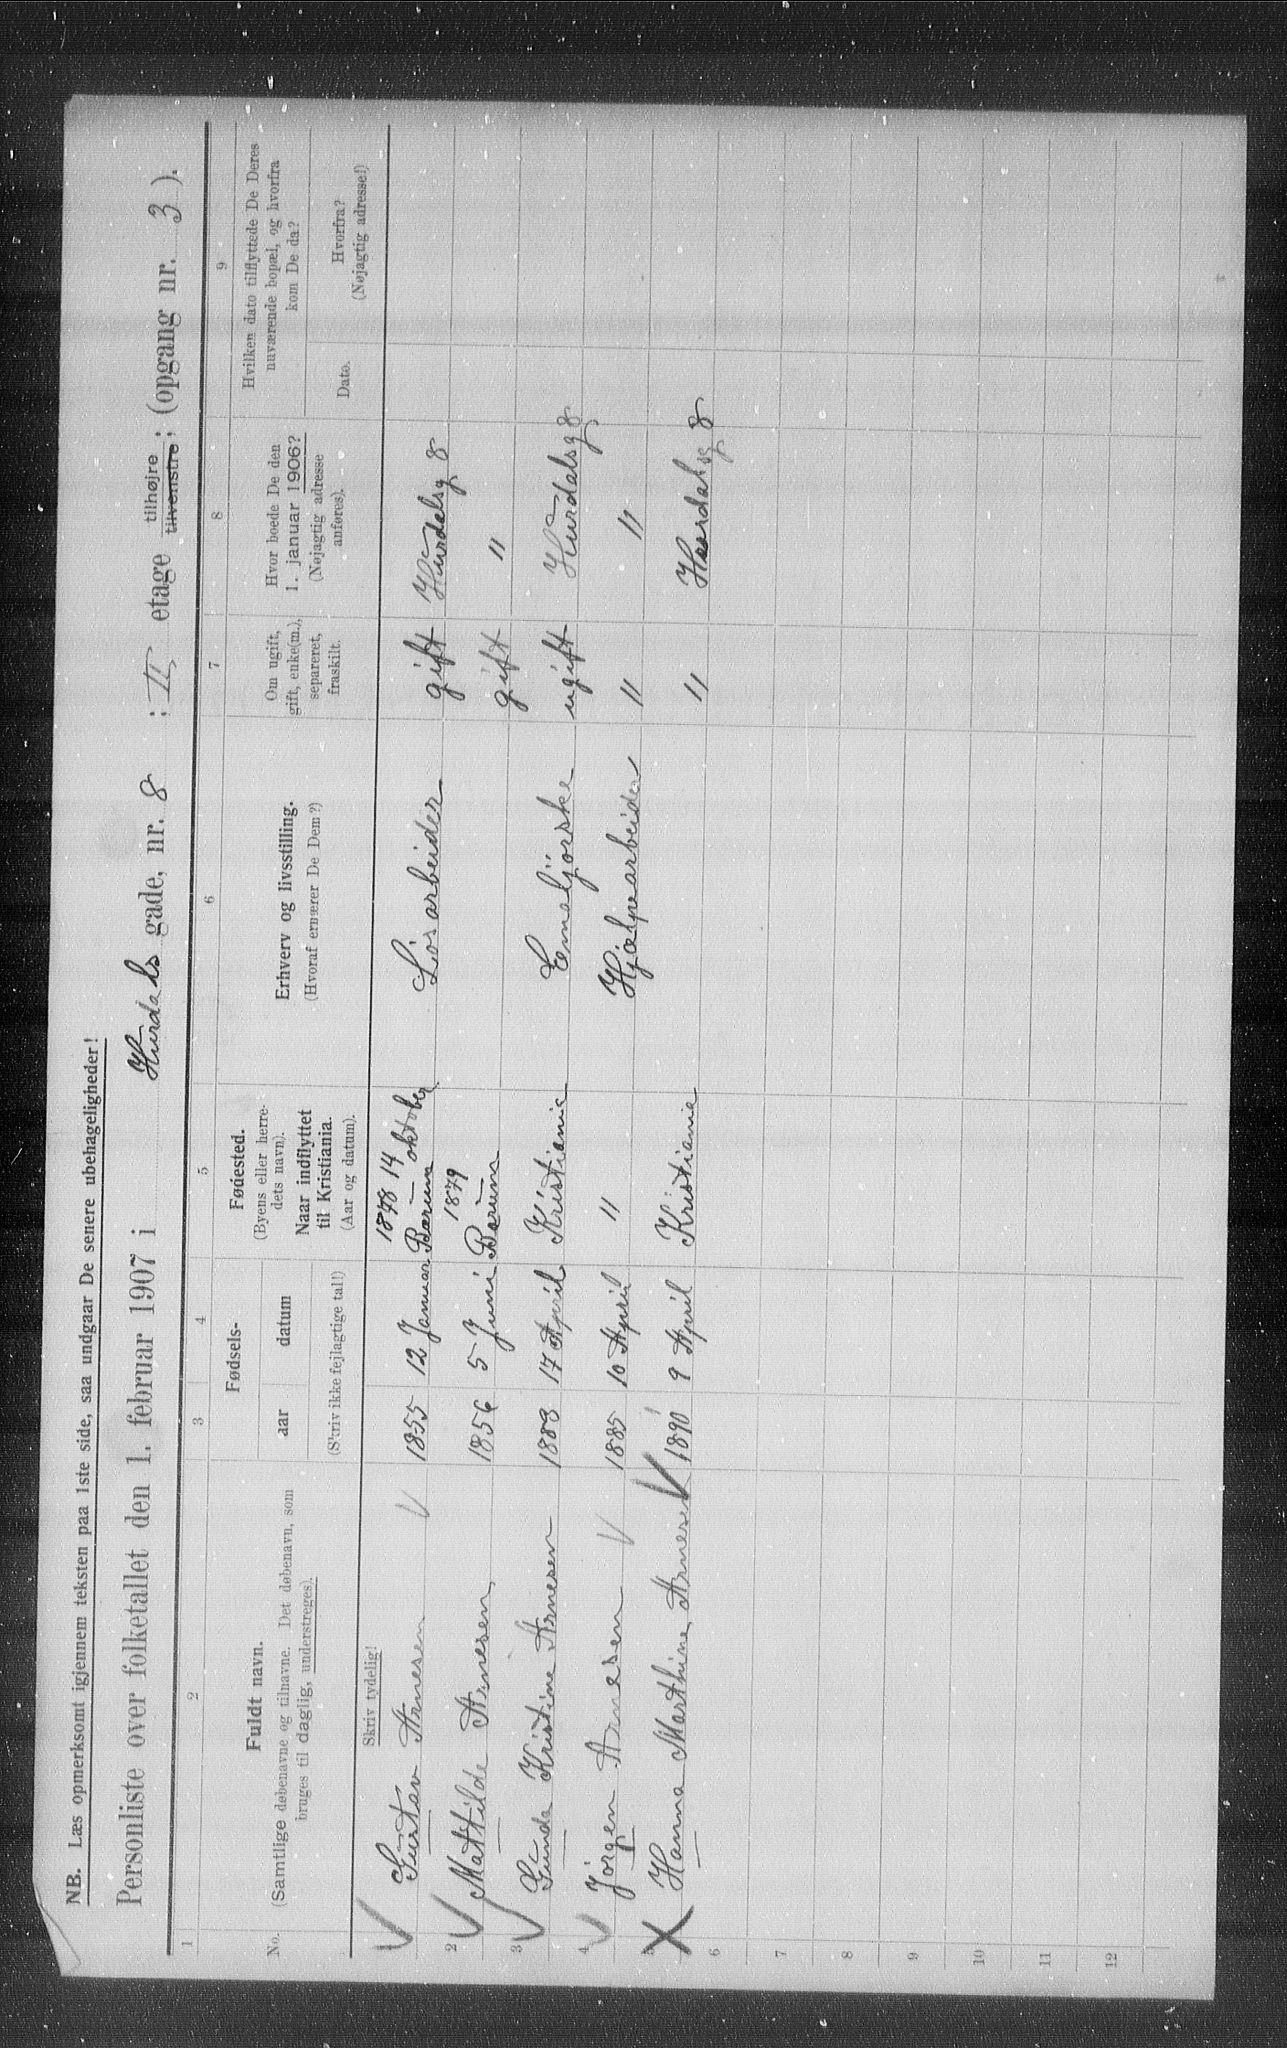 NB. Læs opmerksomt igjennem teksten paa 1ste side, saa undgaar De senere ubehageligheder!
Personliste over folketallet den 1. februar 1907 i Hurdals gade, nr. 8 ; II etage tilhøjre tilvenstre; (opgang nr. 3 ).
1 2 3 4 5 6 7 8 9
No.
Fuldt navn.
(Samtlige døbenavne og tilnavne. Det døbenavn, som
bruges til daglig, understreges).
Fødsels-
aar datum
(Skriv ikke fejlagtige tal!)
Fødested.
(Byens eller herre-
dets navn).
Naar indflyttet
til Kristiania.
(Aar og datum).
Erhverv og livsstilling.
(Hvoraf ernærer De Dem?)
Om ugift,
gift, enke(m.),
separeret,
fraskilt.
Hvor boede De den
1. januar 1906?
(Nøjagtig adresse
anføres).
Hvilken dato tilflyttede De Deres
nuværende bopæl, og hvorfra
kom De da?
Dato.
Hvorfra?
(Nøjagtig adresse!)
Skriv tydelig!
1878 14 oktober
Gustav Arnesen 1855 12 Januar Bærum Lösarbeider gift Hurdalsg 8
1879
2 Mathilde Arnesen 1856 5 Juni Bærum gift "
3 Gunda Kristine Arnesen 1883 17 April Kristiania Emaljörske ugift Hurdalsg 8
4 Jörgen Arnesen 1885 10 April " Hjælpearbeider " "
5 Hanna Marthine Arnesen 1890 9 April Kristiania " Hurdalsg 8
6
7
8
9
10
11
12